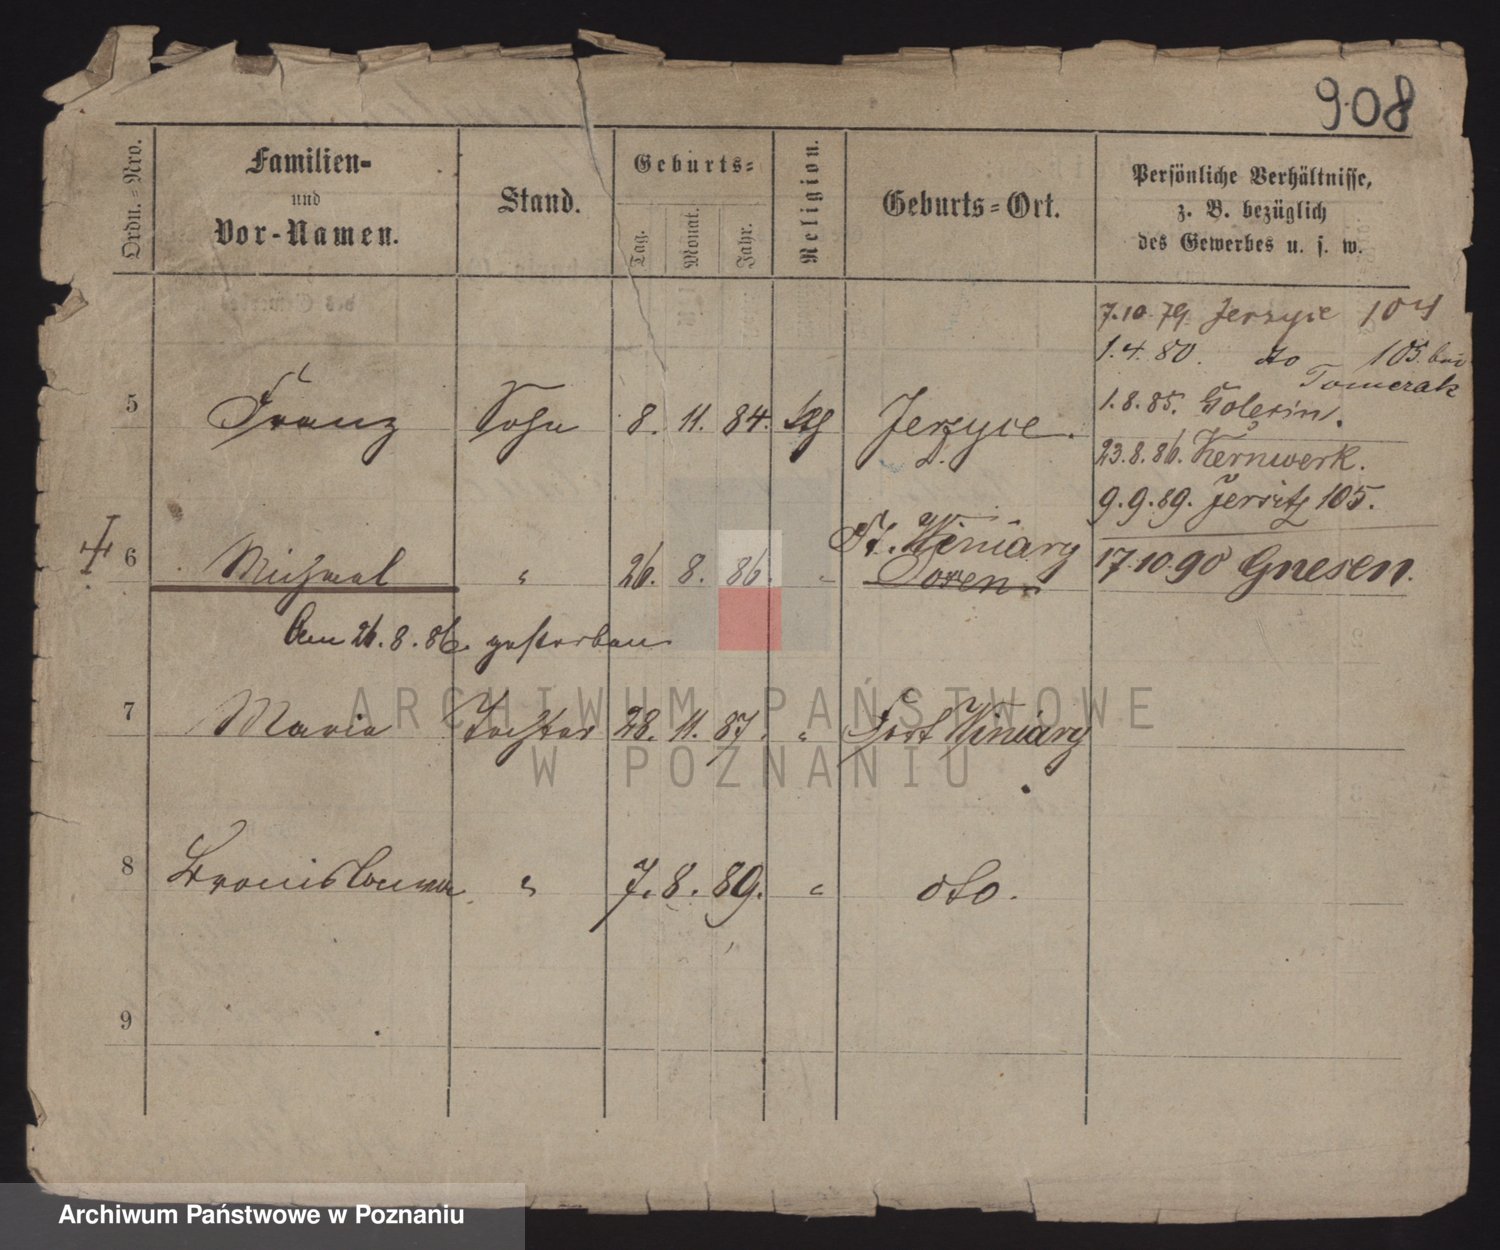 908
Ordn.=Nro.
Familien=
und
Vor-Namen.
Stand.
Geburts=
Tag.
Monat.
Jahr.
Religion.
Geburts=Ort.
Persönliche Verhältnisse,
z. B. bezüglich
des Gewerbes u. s. w.
7.10.79. Jerzyce 104
1.4.80. do 105. bei
Tomczak
1.8.85. Golecin.
23.8.86. Kernwerk.
9.9.89. Jersitz 105.
17.10.90 Gnesen.
5 Franz Sohn 8. 11. 84. kth Jerzyce.
6 Michael " 26. 8. 86. " Ft. Winiary
Posen
Am 26.8.86. gestorben
7 Maria Tochter 28. 11. 87. " Fort Winiary
8 Bronislawa " 7. 8. 89. " dto.
9
ARCHIWUM PAŃSTWOWE
W POZNANIU
Archiwum Państwowe w Poznaniu